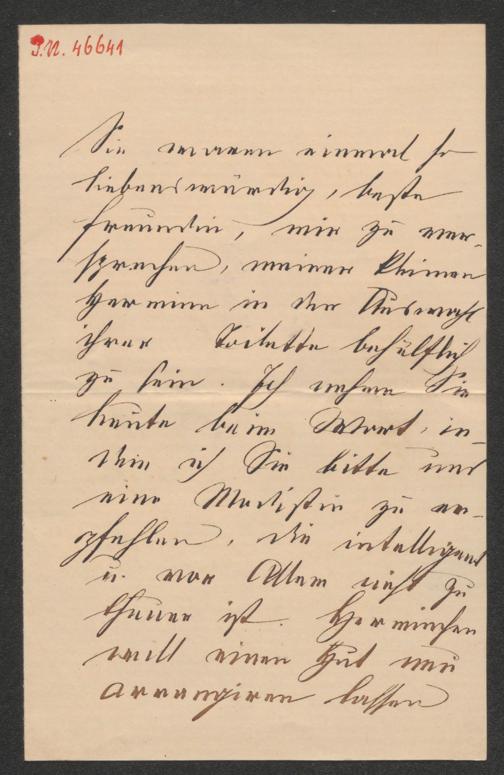 J.N. 46641
Sie waren einmal so
liebenswürdig, beste
Freundin, mir zu ver-
sprechen, meiner kleinen
Hermine in der Auswahl
ihrer Toilette behülflich
zu sein. Ich nehme Sie
heute beim Wort, in-
dem ich Sie bitte uns
eine Modistin zu em-
pfehlen, die intelligent
u. vor Allem nicht zu
theuer ist. Herminchen
will einen Hut neu
arrangiren lassen